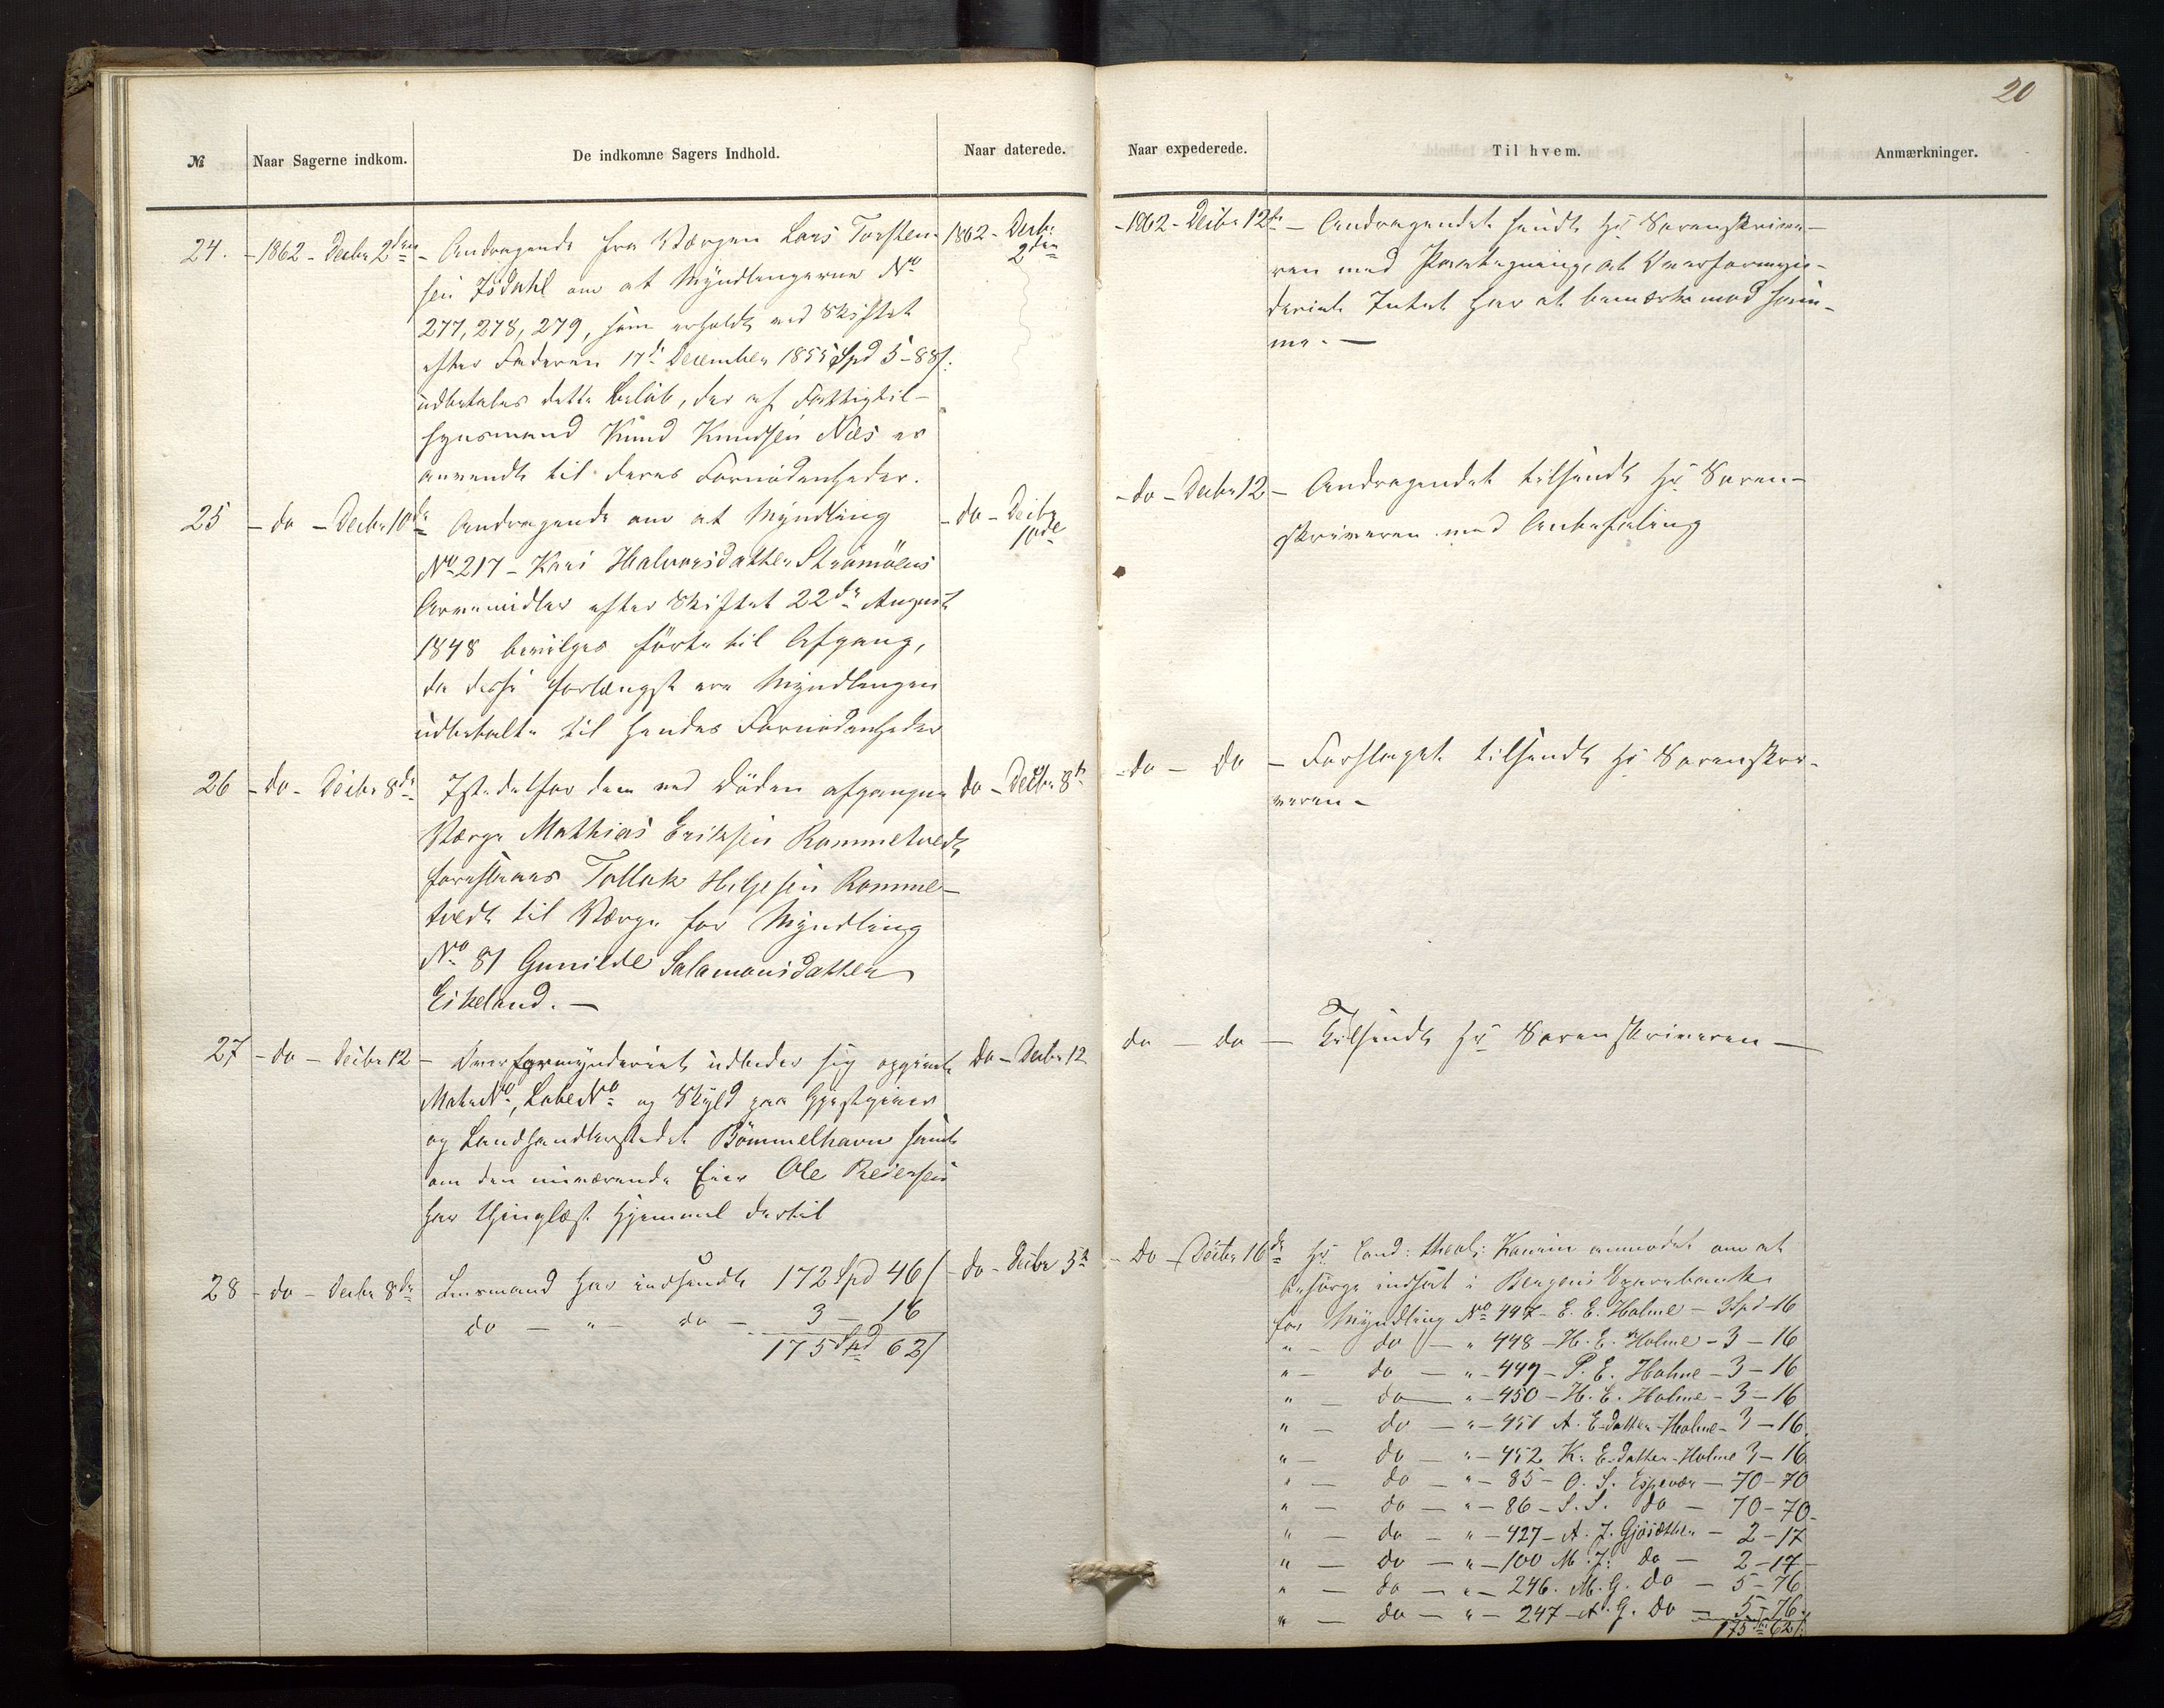 20
№ Naar Sagerne indkom. De indkomne Sagers Indhold. Naar daterede.
24. - 1862 - Decbr 2den - Andragende fra Værgen Lars Torsten- 1862 - Decbr 2den
sen Isdahl om at Myndlingerne No
277, 278, 279, som erholdt ved Skiftet
efter Faderen 17de December 1855 Spd 5-88/:
udbetales dette Beløb, der af Fattigtil-
synsmand Knud Knudsen Næs er
anvendt til deres Fornødenheder.
25 - do - Decbr 10de Andragende om at Myndling - do - Decbr 10de
No 217 - Kari Halvorsdatter Strømøens
Arvemidler efter Skiftet 22de August
1848 bevilges førte til Afgang,
da disse forlængst ere Myndlingen
udbetalte til hendes Fornødenheder
26 - do - Decbr 8de Istedetfor den ved Døden afgangne do - Decbr 8de
Værge Mathias Eriksen Rommetvedt
foreslaaes Tollak Helgesen Romme-
tvedt til Værge for Myndling
No 81 Gunilde Salamonsdatter
Eikeland. -
27 - do - Decbr 12 - Overformynderiet udbeder sig opgivet do - Decbr 12
Matr No, Løbe No og Skyld paa Gjestgiver
og Landhandlerstedet Bömmelhavn samt
om den nuværende Eier Ole Reiersen
har thinglæst Hjemmel dertil
28 - do - Decbr 8de Lensmand har indsendt 172 Spd 46/ - do - Decbr 5te
do - " - do - 3 - 16
175 Spd 62/
Naar expederede. Til hvem. Anmærkninger.
- 1862 - Decbr 12te - Andragendet sendt Hr Sorenskrive-
ren med Paategning, at Overformyn-
deriet Intet har at bemærke mod sam-
me. -
- do - Decbr 12 - Andragendet tilsendt Hr Soren-
skriveren med Anbefaling
- do - do - Forslaget tilsendt Hr Sorenskri-
veren -
do - do - Tilsendt Hr Sorenskriveren -
- do - Decbr 16de Hr Cand: theol: anmodet om at
besørge indsat i Bergens Sparebank
for Myndling No 447 - E. E. Holme - 3 Spd - 16
" - do - " 448 - H. E. Holme - 3 - 16
" - do - " - 449 - P. E. Holme - 3 - 16
" - do - " - 450 - H. E. Holme - 3 - 16
" - do - " - 451 A. E-datter Holme - 3 - 16
" - do - " - 452 K. E-datter Holme 3 - 16
" - do - " - 85 - O. S. Espevær - 70 - 70
" - do - " - 86 - S. S. do - 70 - 70
" - do - " - 427 - A. J. Gjøsæther - 2 - 17
" - do - " - 100 M. J. do - 2 - 17
" - do - " - 246. M. G. do - 5 - 76
" - do - " - 247 - A. G. do - 5 - 76
175 Spd 62/: